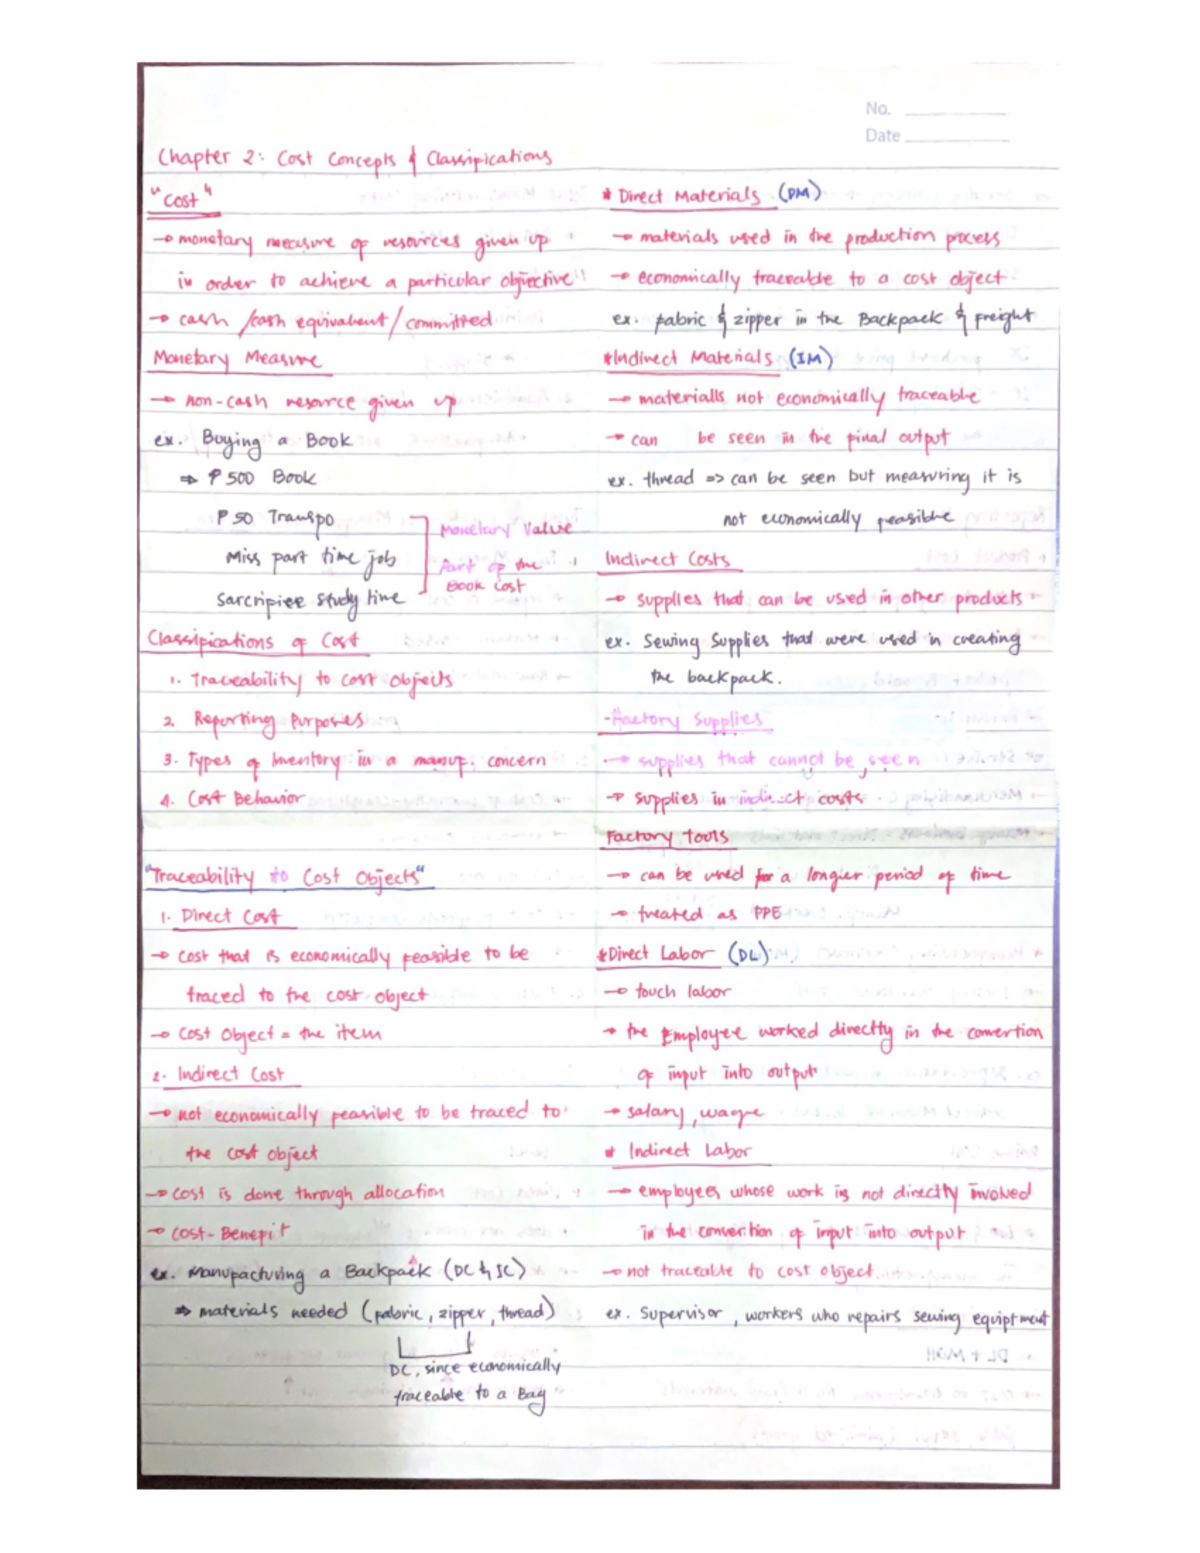 No.
Date
Chapter 2: Cost Concepts & Classifications
"Cost"
→ monetary measure of resources given up
in order to achieve a particular objective
→ cash /cash equivalent / committed
Monetary Measure
→ non-cash resource given up
ex. Buying a Book
⇒ ₱500 Book
₱50 Transpo
Miss part time job
Sarcripice study time
Monetary Value
Part of the
Book Cost
Classifications of Cost
1. Traceability to cost objects
2. Reporting Purposes
3. Types of Inventory in a manuf. concern
4. Cost Behavior
"Traceability to Cost Objects"
1. Direct Cost
→ cost that is economically feasible to be
traced to the cost object
→ Cost Object = the item
2. Indirect Cost
→ not economically feasible to be traced to
the cost object
→ cost is done through allocation
→ cost-Benefit
ex. Manufacturing a Backpack (DC & IC)
⇒ materials needed (fabric, zipper, thread)
DC, since economically
traceable to a Bag
* Direct Materials (DM)
→ materials used in the production process
→ economically traceable to a cost object
ex. fabric & zipper in the Backpack & freight
*Indirect Materials (IM)
→ materialls not economically traceable
→ can be seen in the final output
ex. thread => can be seen but measuring it is
not economically feasible
Indirect Costs
→ supplies that can be used in other products
ex. Sewing Supplies that were used in creating
the backpack.
-Factory Supplies
→ supplies that cannot be seen
→ supplies in indirect costs
Factory Tools
→ can be used for a longer period of time
→ treated as PPE
*Direct Labor (DL)
→ touch labor
→ the Employee worked directly in the convertion
of input into output
→ salary, wage
* Indirect Labor
→ employees whose work is not directly involved
in the convertion of input into output
→ not traceable to cost object
ex. Supervisor, workers who repairs sewing equiptment